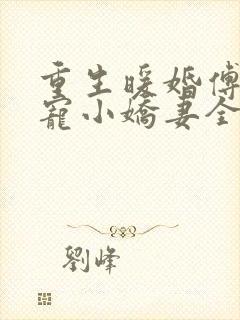 重生暖婚傅
寵小嬌妻全
劉峰